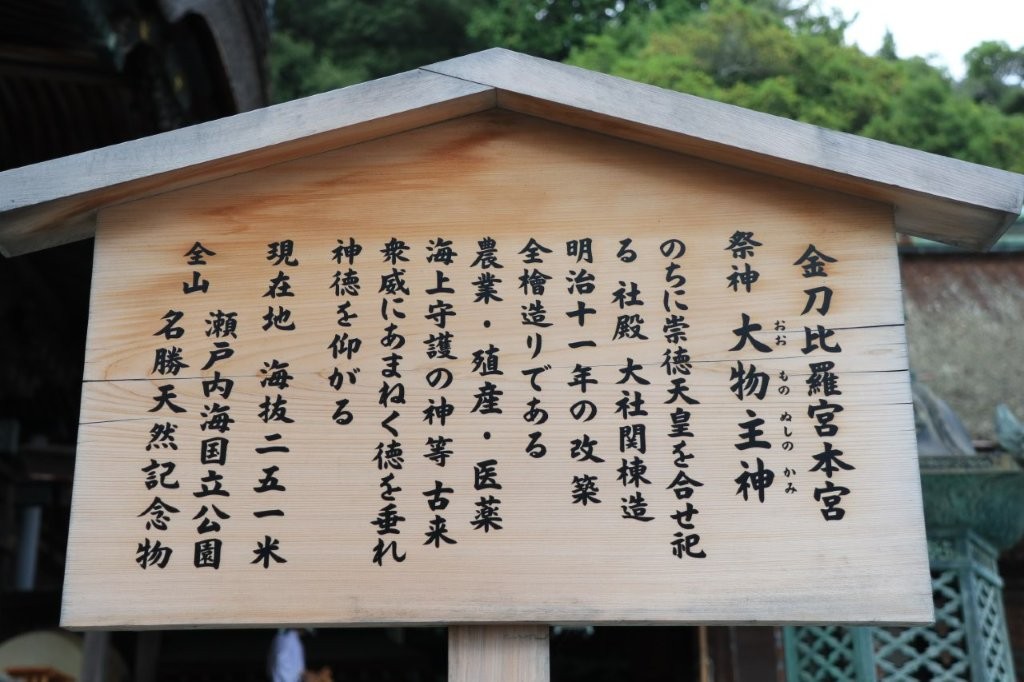 金刀比羅宮本宮
祭神　大物主神
おお　もの　ぬしの　かみ
のちに崇徳天皇を合せ祀
る　社殿　大社関棟造
明治十一年の改築
全檜造りである
農業・殖産・医薬
海上守護の神等　古来
衆威にあまねく徳を垂れ
神徳を仰がる
現在地　海抜二五一米
全山　瀬戸内海国立公園
名勝天然記念物